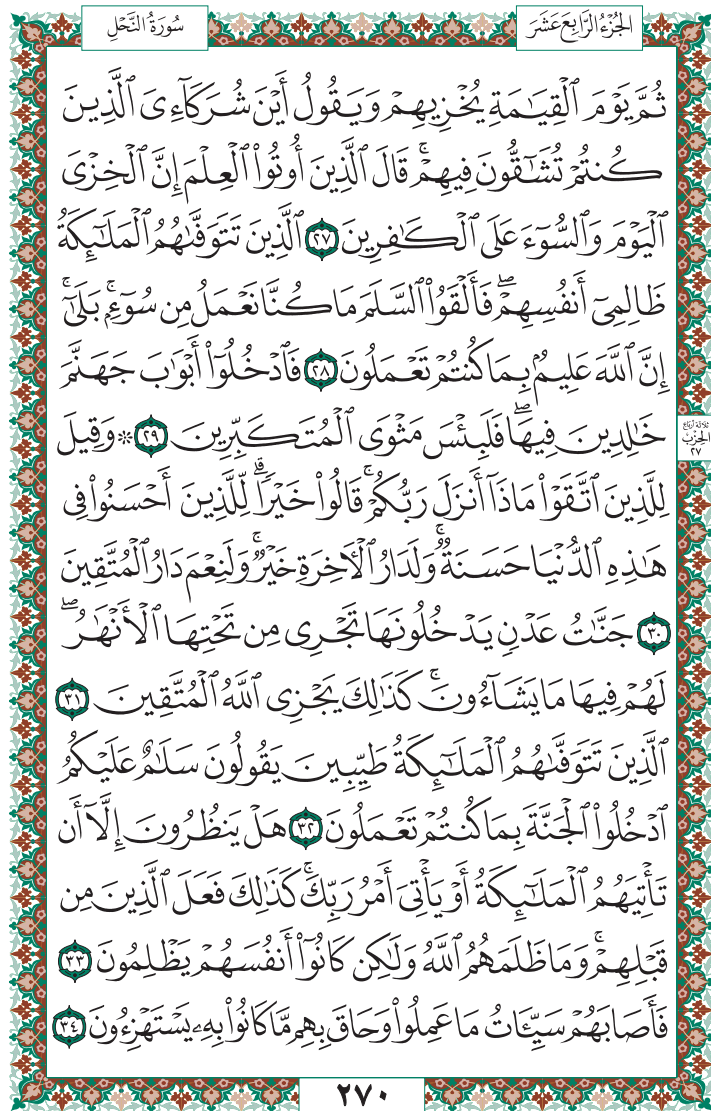 الجُزْءُ الرَّابِعَ عَشَرَ
سُورَةُ النَّحْلِ
ثُمَّ يَوْمَ ٱلْقِيَٰمَةِ يُخْزِيهِمْ وَيَقُولُ أَيْنَ شُرَكَآءِىَ ٱلَّذِينَ
كُنتُمْ تُشَٰٓقُّونَ فِيهِمْ ۚ قَالَ ٱلَّذِينَ أُوتُوا۟ ٱلْعِلْمَ إِنَّ ٱلْخِزْىَ
ٱلْيَوْمَ وَٱلسُّوٓءَ عَلَى ٱلْكَٰفِرِينَ ٢٧ ٱلَّذِينَ تَتَوَفَّىٰهُمُ ٱلْمَلَٰٓئِكَةُ
ظَالِمِىٓ أَنفُسِهِمْ ۖ فَأَلْقَوُا۟ ٱلسَّلَمَ مَا كُنَّا نَعْمَلُ مِن سُوٓءٍۭ ۚ بَلَىٰٓ ۚ
إِنَّ ٱللَّهَ عَلِيمٌۢ بِمَا كُنتُمْ تَعْمَلُونَ ٢٨ فَٱدْخُلُوٓا۟ أَبْوَٰبَ جَهَنَّمَ
خَٰلِدِينَ فِيهَا ۖ فَلَبِئْسَ مَثْوَى ٱلْمُتَكَبِّرِينَ ٢٩ ۞ وَقِيلَ
لِلَّذِينَ ٱتَّقَوْا۟ مَاذَآ أَنزَلَ رَبُّكُمْ ۚ قَالُوا۟ خَيْرًا ۗ لِّلَّذِينَ أَحْسَنُوا۟ فِى
هَٰذِهِ ٱلدُّنْيَا حَسَنَةٌ ۚ وَلَدَارُ ٱلْءَاخِرَةِ خَيْرٌ ۚ وَلَنِعْمَ دَارُ ٱلْمُتَّقِينَ
٣٠ جَنَّٰتُ عَدْنٍ يَدْخُلُونَهَا تَجْرِى مِن تَحْتِهَا ٱلْأَنْهَٰرُ ۖ
لَهُمْ فِيهَا مَا يَشَآءُونَ ۚ كَذَٰلِكَ يَجْزِى ٱللَّهُ ٱلْمُتَّقِينَ ٣١
ٱلَّذِينَ تَتَوَفَّىٰهُمُ ٱلْمَلَٰٓئِكَةُ طَيِّبِينَ يَقُولُونَ سَلَٰمٌ عَلَيْكُمُ
ٱدْخُلُوا۟ ٱلْجَنَّةَ بِمَا كُنتُمْ تَعْمَلُونَ ٣٢ هَلْ يَنظُرُونَ إِلَّآ أَن
تَأْتِيَهُمُ ٱلْمَلَٰٓئِكَةُ أَوْ يَأْتِىَ أَمْرُ رَبِّكَ ۚ كَذَٰلِكَ فَعَلَ ٱلَّذِينَ مِن
قَبْلِهِمْ ۚ وَمَا ظَلَمَهُمُ ٱللَّهُ وَلَٰكِن كَانُوٓا۟ أَنفُسَهُمْ يَظْلِمُونَ ٣٣
فَأَصَابَهُمْ سَيِّـَٔاتُ مَا عَمِلُوا۟ وَحَاقَ بِهِم مَّا كَانُوا۟ بِهِۦ يَسْتَهْزِءُونَ ٣٤
ثلاثة أرباع
الحِزْبِ
٢٧
٢٧٠